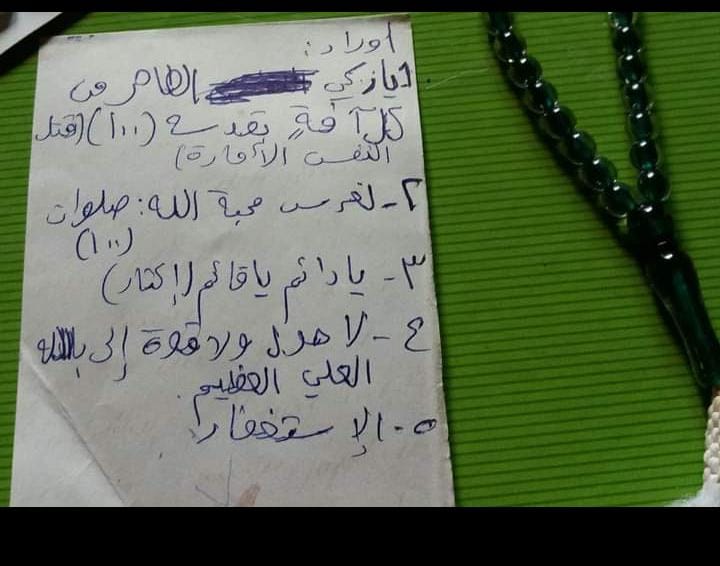 اوراد:
1 يازكي الطاهر من
كل آفةٍ بقدسه (١٠٠) (قتل
النفس الأمارة)
٢- لغرس محبة الله: صلوات
(١٠٠)
٣- يادائم ياقائم (إكثار)
٤- لا حول ولا قوة إلى بالله
العلي العظيم.
٥- الإستغفار